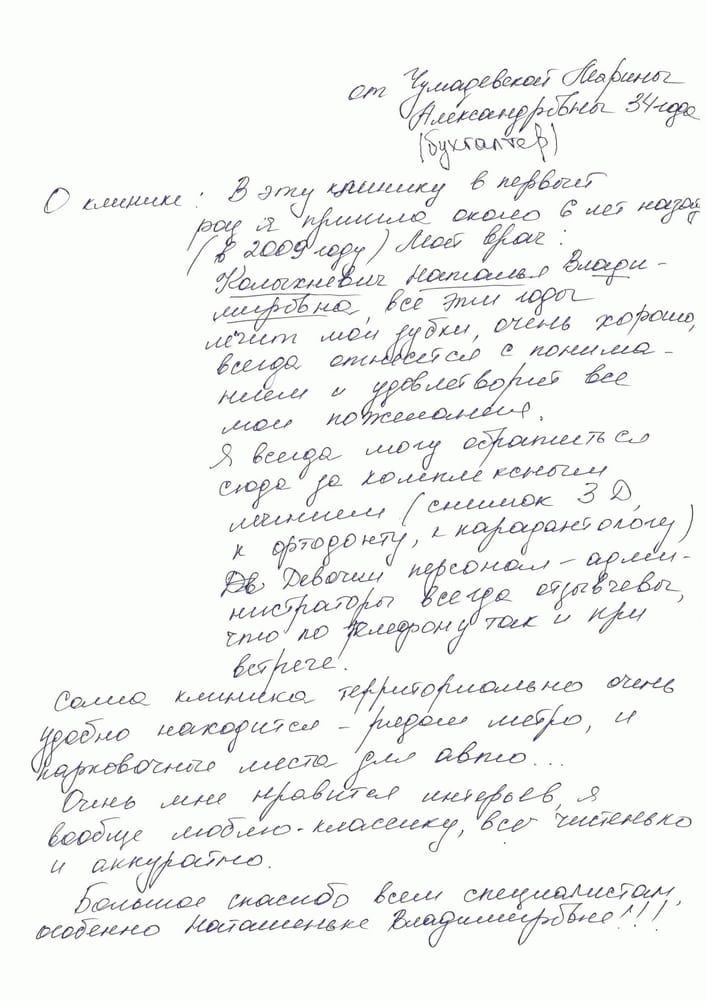 от Чумадевской Марины
Александровны 34 года
(бухгалтер)
О клинике: В эту клинику в первый
раз я пришла около 6 лет назад
(в 2009 году) Мой врач:
Колыхневич Наталья Влади-
мировна, все эти годы
лечит мои зубки, очень хорошо,
всегда относится с понима-
нием и удовлетворит все
мои пожелания.
Я всегда могу обратиться
сюда за комплексным
лечением (снимок 3 D,
к ортодонту, к парадантологу)
Дв Девочки персонал - адми-
нистраторы всегда отзывчевы,
что по телефону так и при
встрече.
Сама клиника территориально очень
удобно находится - рядом метро, и
парковочные места для авто...
Очень мне нравится интерьев, я
вообще люблю-классику, всё чистенько
и аккуратно.
Большое спасибо всем специалистам,
особенно Наташеньке Владимировне!!!